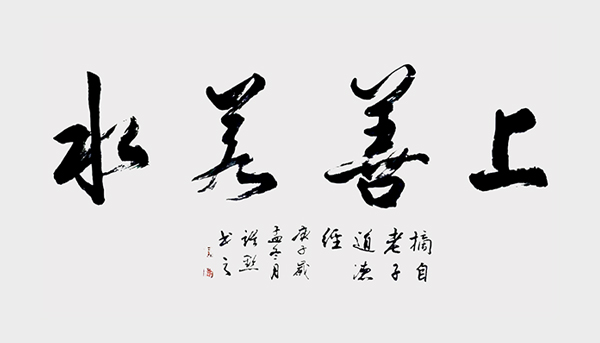 上善若水
摘自
老子
道德
經
庚子歲
孟冬月
书之